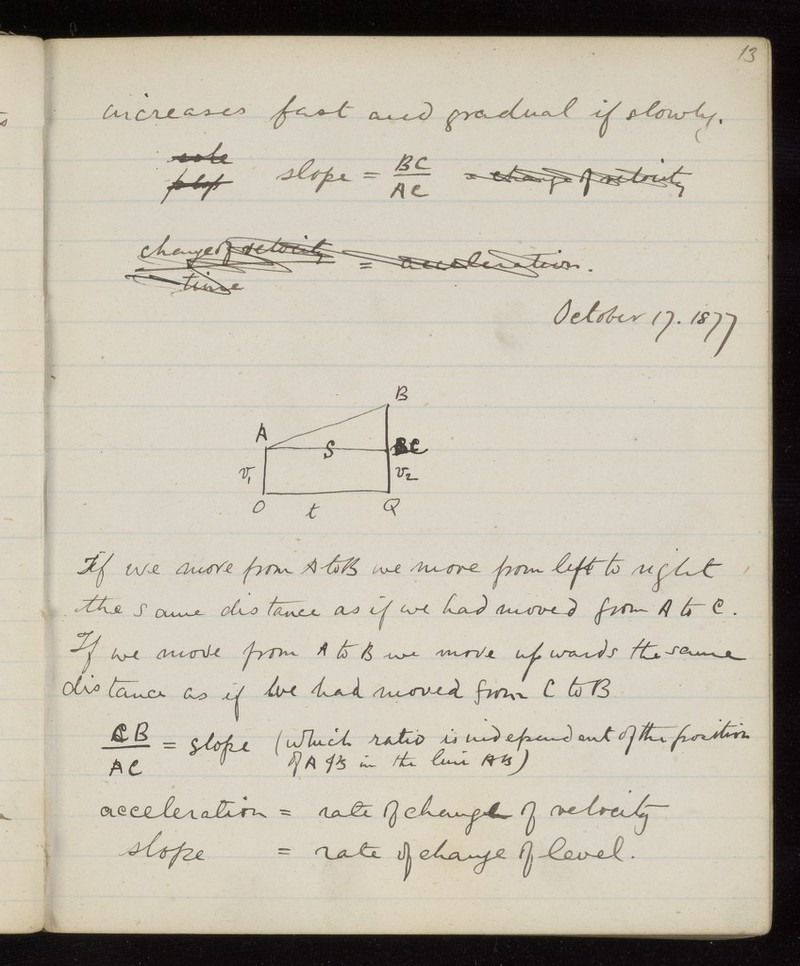 13
increases fast and gradual if slowly.
slope = BC/AC = change of velocity
change of velocity/time = acceleration.
October 17. 1877
B
A
S
C
v₁
v₂
O
t
Q
If we move from A to B we move from left to right
the same distance as if we had moved from A to C.
If we move from A to B we move upwards the same
distance as if we had moved from C to B
CB/AC = slope (which ratio is independent of the position
of A & B in the line AB)
acceleration = rate of change of velocity
slope = rate of change of level.